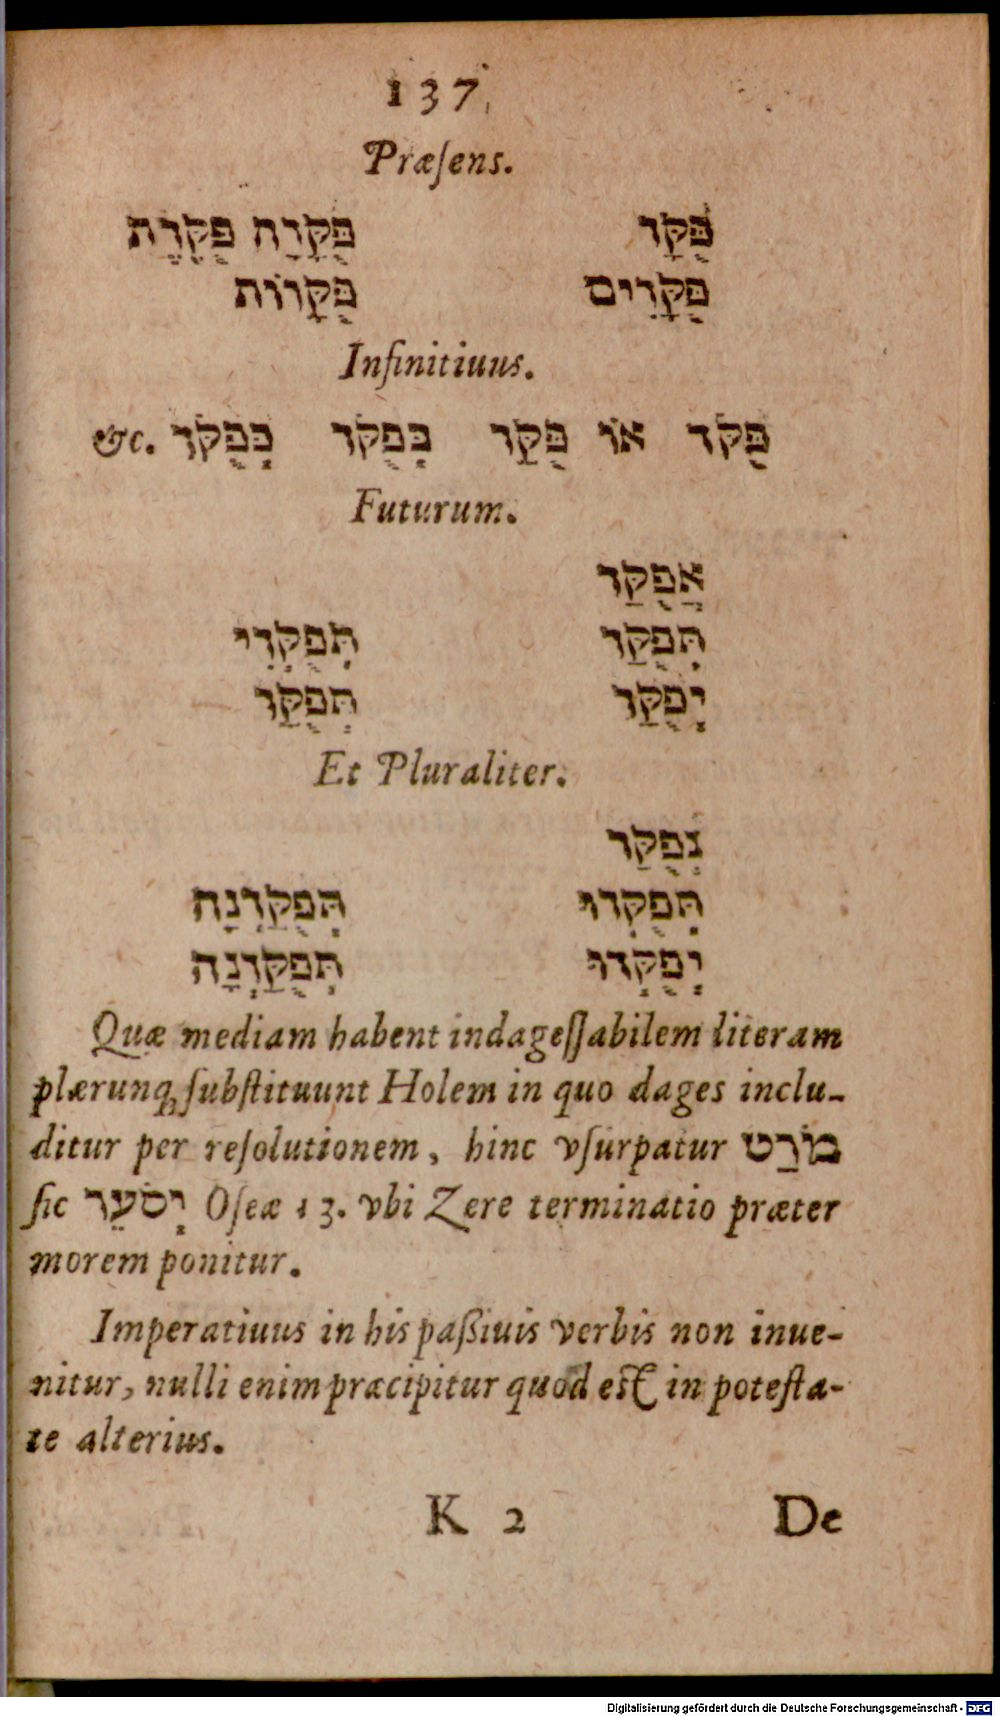 137
Præſens.
פֻּקָּד פֻּקָּדָה פֻּקֶּדֶת
פֻּקָּדִים פֻּקָּדוֹת
Infinitiuus.
פֻּקֹּד אוֹ פֻּקַּד בְּפֻקֹּד כְּפֻקֹּד &c.
Futurum.
אֲפֻקַּד
תְּפֻקַּד תְּפֻקְּדִי
יְפֻקַּד תְּפֻקַּד
Et Pluraliter.
נְפֻקַּד
תְּפֻקְּדוּ תְּפֻקַּדְנָה
יְפֻקְּדוּ תְּפֻקַּדְנָה
Quæ mediam habent indageſſabilem literam
plærunq; ſubſtituunt Holem in quo dages inclu-
ditur per reſolutionem, hinc vſurpatur מוֹרַט
ſic יְסֹעֵר Oſeæ 13. vbi Zere terminatio præter
morem ponitur.
Imperatiuus in his paßiuis verbis non inue-
nitur, nulli enim præcipitur quod eſt in poteſta-
te alterius.
K 2 De
Digitalisierung gefördert durch die Deutsche Forschungsgemeinschaft - DFG